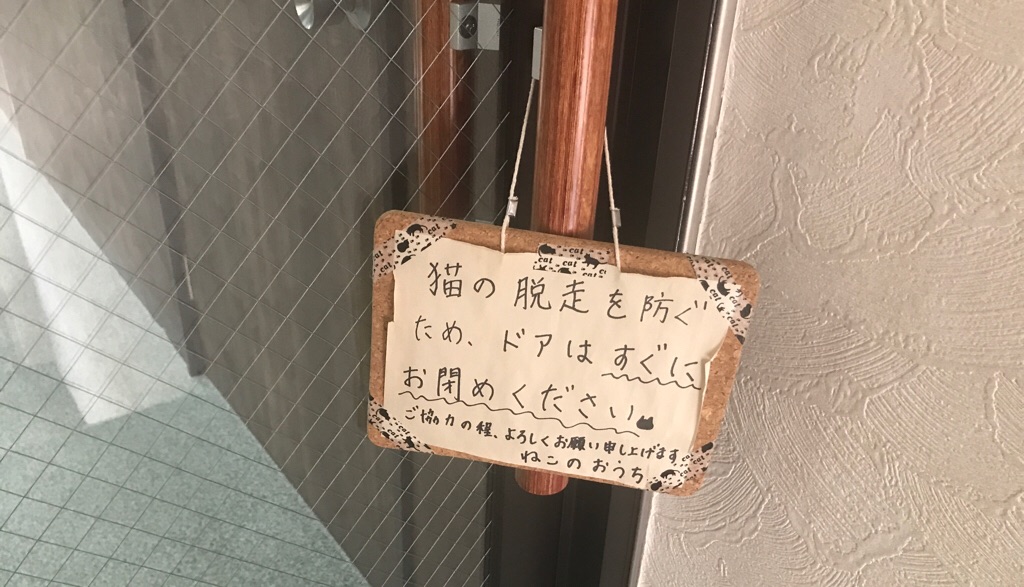 cat cat cat
猫の脱走を防ぐ
ため、ドアはすぐに
お閉めください
ご協力の程、よろしくお願い申し上げます。
ねこのおうち